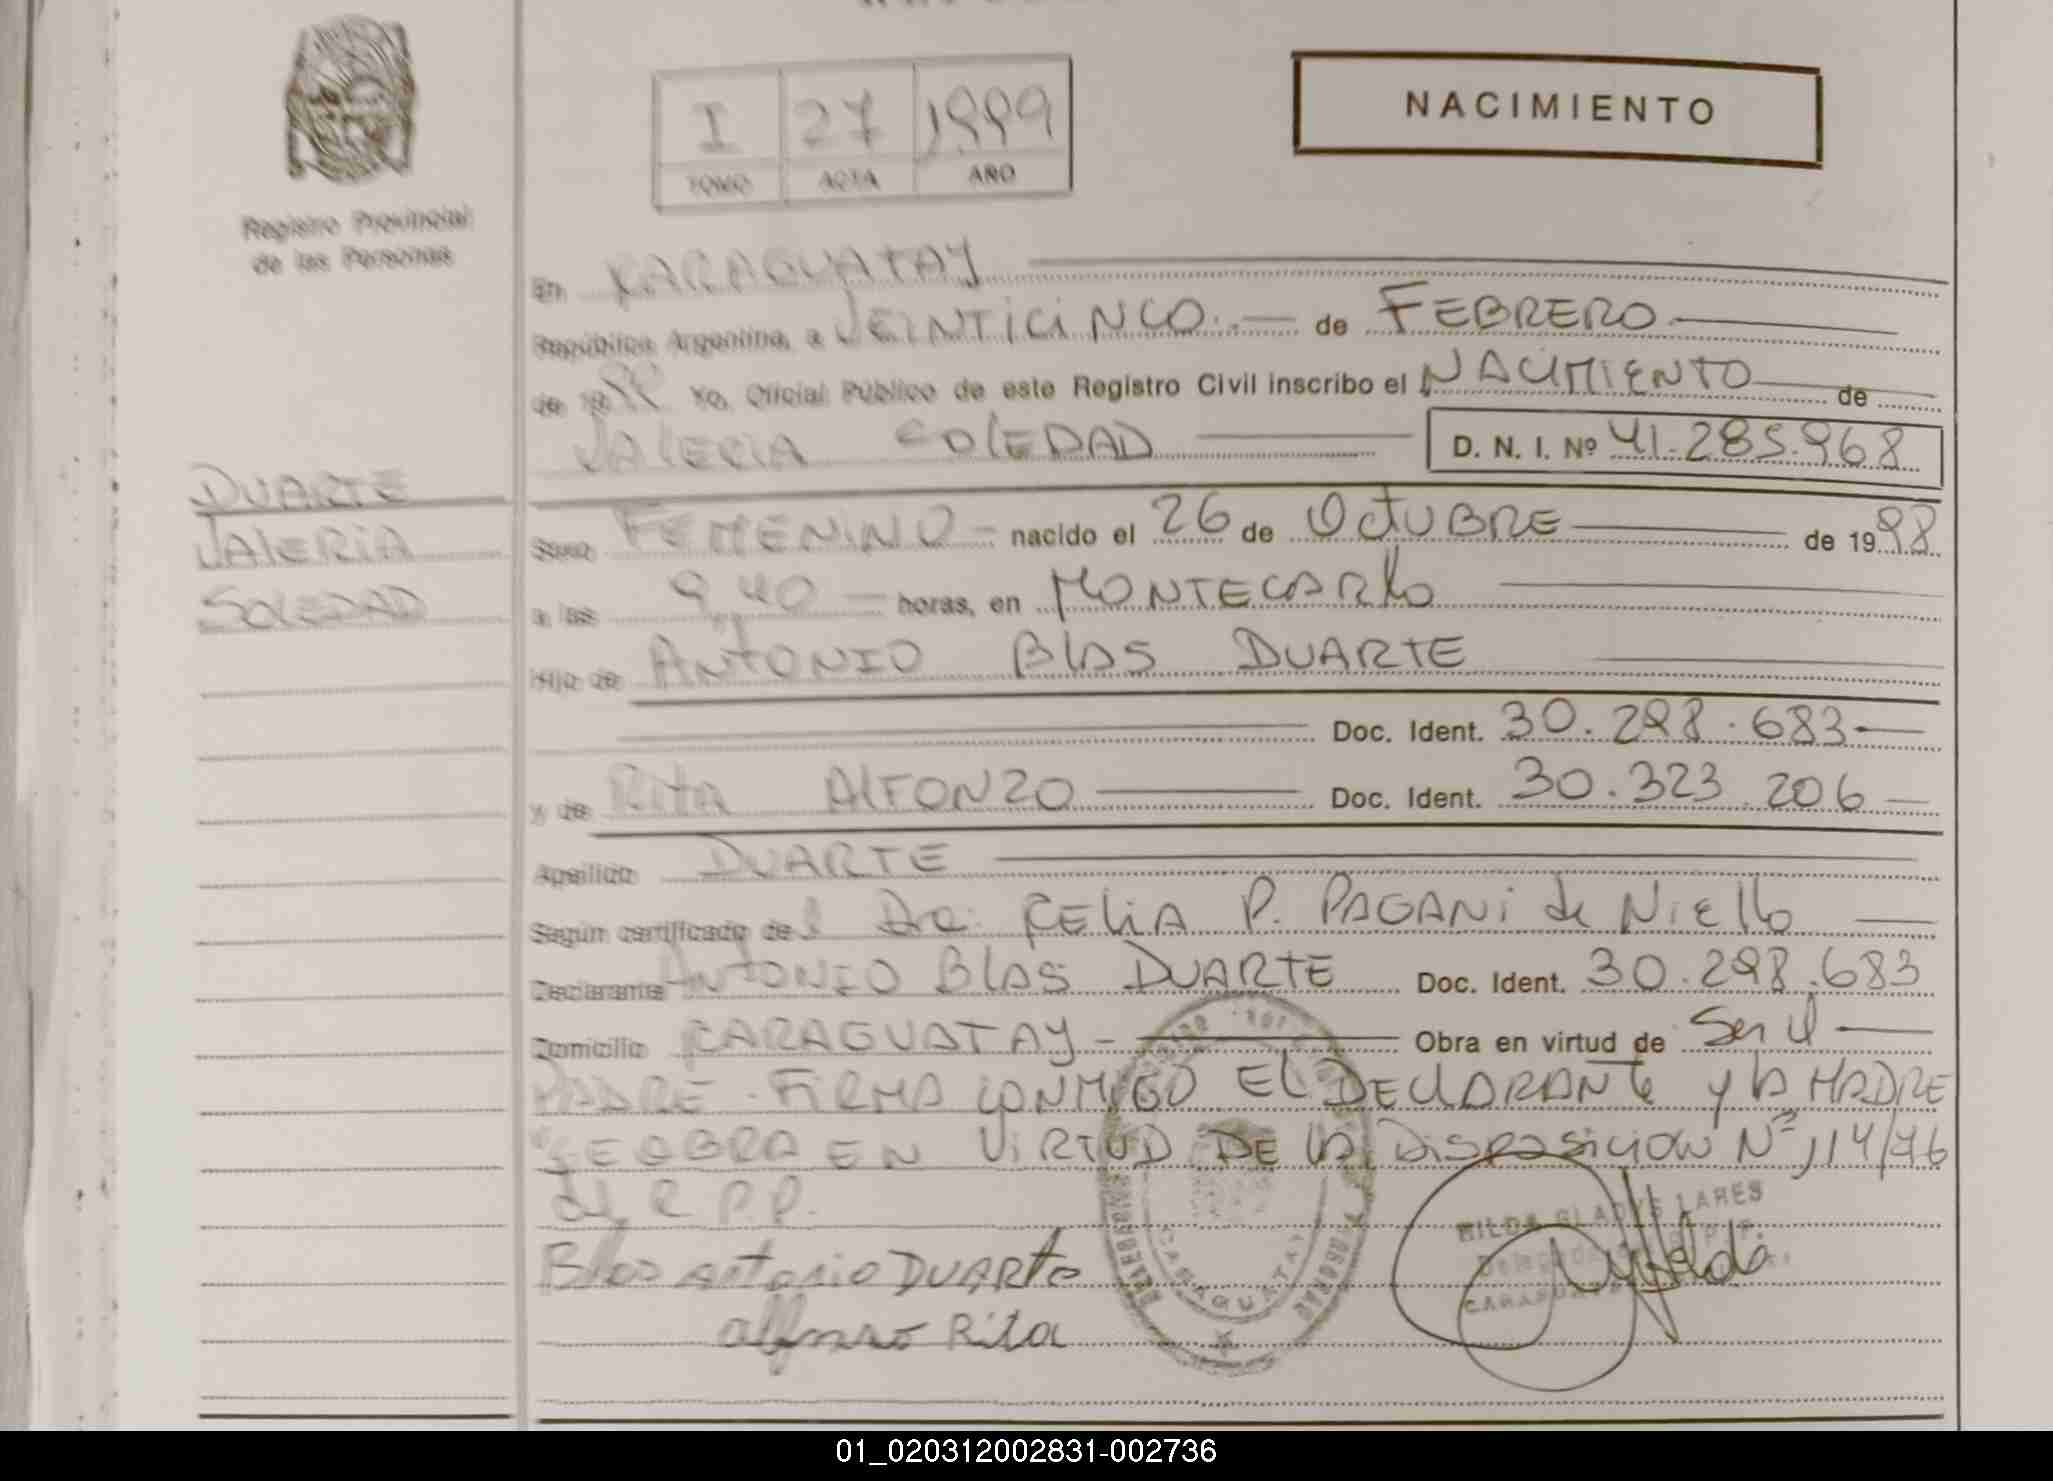 NACIMIENTO
I 27 1999
TOMO ACTA AÑO
Registro Provincial
de las Personas
En CARAGUATAY
República Argentina, a VEINTICINCO de FEBRERO
de 1999 Yo, Oficial Público de este Registro Civil inscribo el NACIMIENTO de
VALERIA SOLEDAD D. N. I. Nº 41.285.968
DUARTE
VALERIA
SOLEDAD
Sexo FEMENINO nacido el 26 de OCTUBRE de 1998
a las 9,40 horas, en MONTECARLO
Hijo de ANTONIO BLAS DUARTE
Doc. Ident. 30.298.683
y de RITA ALFONZO Doc. Ident. 30.323.206
Apellido DUARTE
Según certificado de Dra: CELIA P. PAGANI de NIELLO
Declarante ANTONIO BLAS DUARTE Doc. Ident. 30.298.683
Domicilio CARAGUATAY - Obra en virtud de Ser el
PADRE - FIRMA CONMIGO EL DECLARANTE y LA MADRE
SE OBRA EN VIRTUD DE LA DISPOSICION Nº 114/96
del R.P.P.
Blas Antonio DUARTE
Alfonso Rita
CARAGUATAY
HILDA GLADYS LARES
01_020312002831-002736